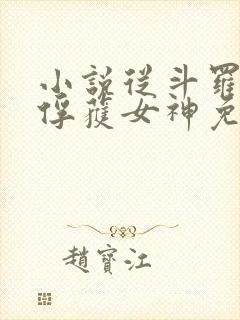 小說從斗羅
俘獲女神免
趙寶江